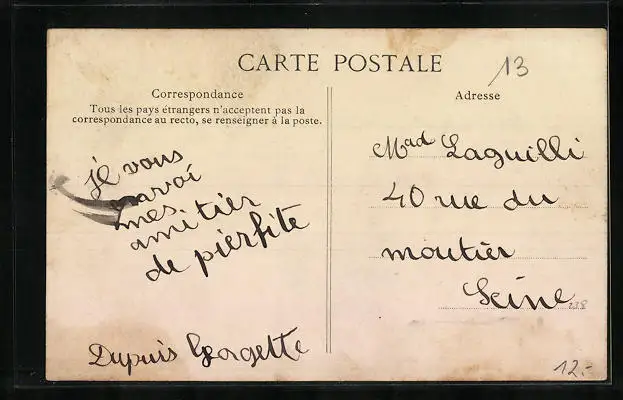 CARTE POSTALE
13
Correspondance
Tous les pays étrangers n'acceptent pas la
correspondance au recto, se renseigner à la poste.
je vous
envoi
mes
amitier
de pierfite
Dupuis Georgette
Adresse
Mad Laguilli
40 rue du
moutier
Seine
238
12.-